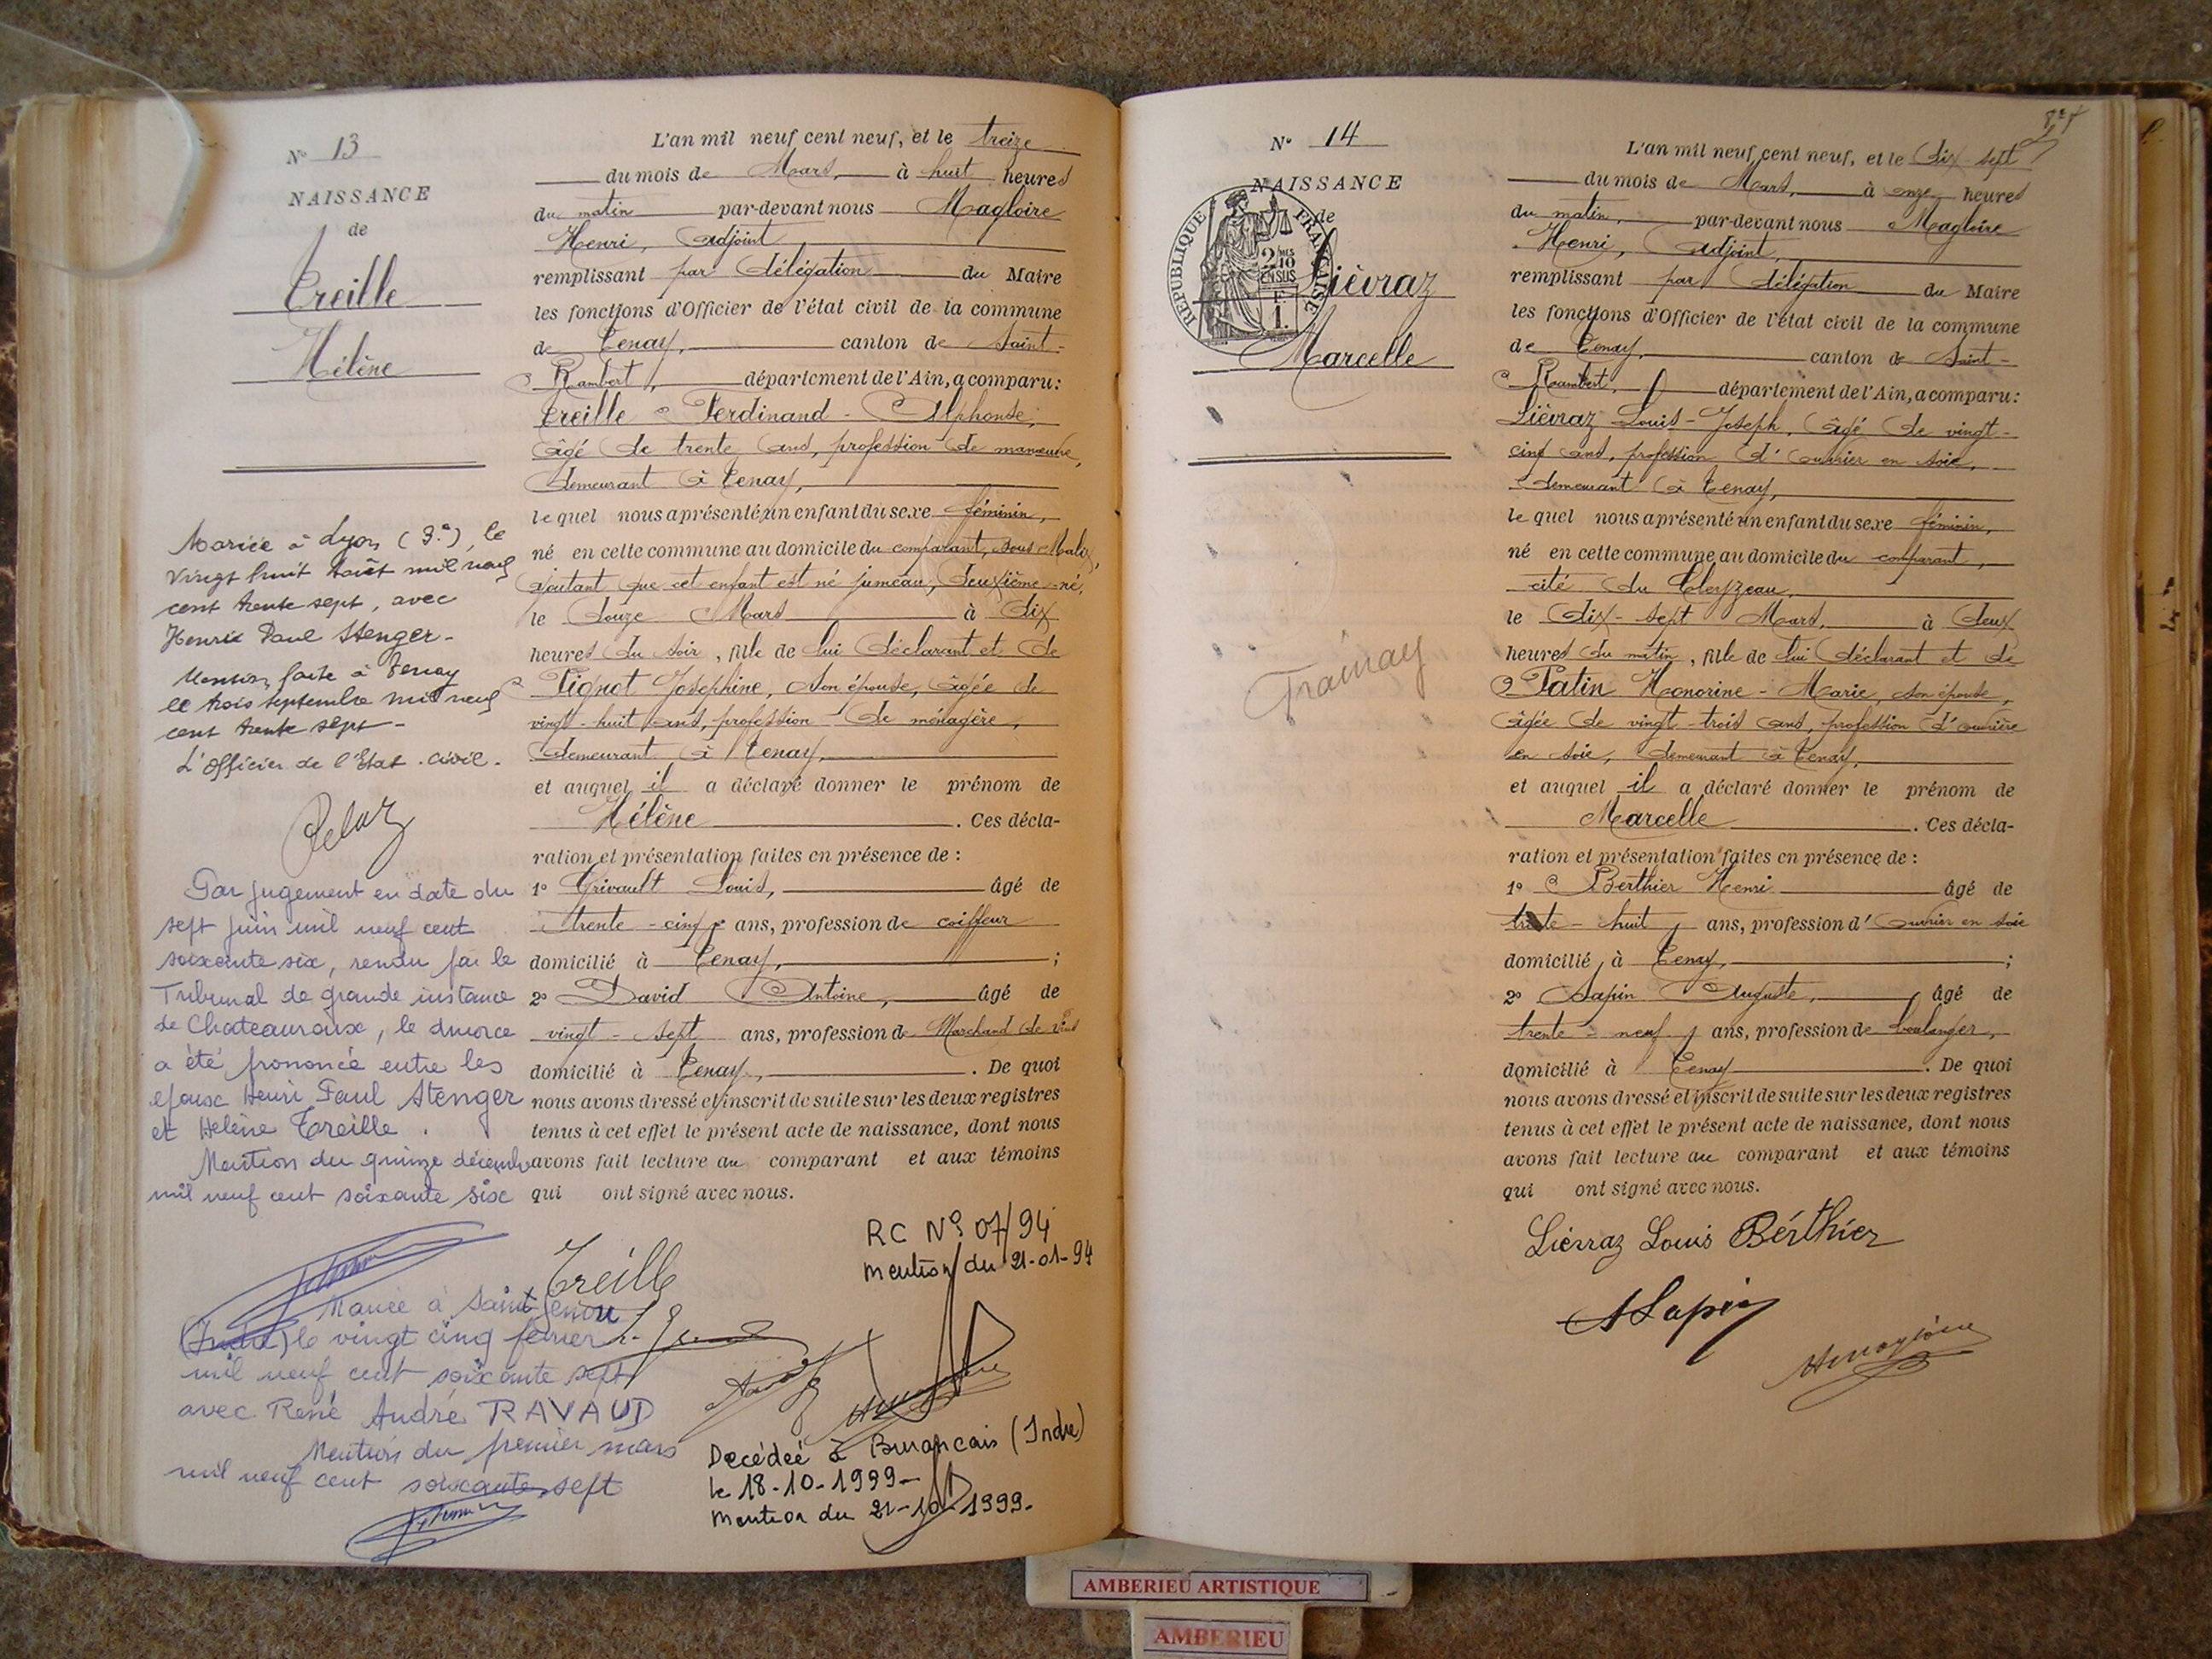 N° 13
NAISSANCE
de
Treille
Hélène
Mariée à Lyon (3e), le
vingt huit août mil neuf
cent trente sept, avec
Henri Paul Stenger-
Mention faite à Tenay
le trois septembre mil neuf
cent trente sept-
L'Officier de l'Etat-civil.
Par jugement en date du
sept juin mil neuf cent
soixante six, rendu par le
Tribunal de grande instance
de Chateauroux, le divorce
a été prononcé entre les
epoux Henri Paul Stenger
et Hélène Treille.
Mention du quinze décembre
mil neuf cent soixante six
L'an mil neuf cent neuf, et le treize
du mois de Mars, à huit heures
du matin par-devant nous Magloire
Henri, Adjoint,
remplissant par délégation du Maire
les fonctions d'Officier de l'état civil de la commune
de Tenay, canton de Saint-
Rambert, département de l'Ain, a comparu:
Treille Ferdinand-Alphonse,
âgé de trente ans, profession de manœuvre,
demeurant à Tenay,
lequel nous a présenté un enfant du sexe féminin,
né en cette commune au domicile du comparant, sous Malix,
ajoutant que cet enfant est né jumeau, deuxième-né,
le douze Mars à dix
heures du soir, fille de lui déclarant et de
Pignot Joséphine, son épouse, âgée de
vingt-huit ans, profession de ménagère,
demeurant à Tenay,
et auquel il a déclaré donner le prénom de
Hélène. Ces décla-
ration et présentation faites en présence de :
1° Grivault Louis, âgé de
trente-cinq ans, profession de coiffeur
domicilié à Tenay, ;
2° David Antoine, âgé de
vingt-sept ans, profession de Marchand de vins
domicilié à Tenay, . De quoi
nous avons dressé et inscrit de suite sur les deux registres
tenus à cet effet le présent acte de naissance, dont nous
avons fait lecture au comparant et aux témoins
qui ont signé avec nous.
RC N° 07/94
mention du 21-01-94
Treille
Mariée à Saint Genou
(Indre) le vingt cinq février
mil neuf cent soixante sept
avec René André RAVAUD
Mention du premier mars
mil neuf cent soixante sept
Decédée à Buzançais (Indre)
le 18-10-1999-
Mention du 21-10-1999-
N° 14
NAISSANCE
de
RÉPUBLIQUE FRANÇAISE
2/10
EN SUS
1F.
Liévraz
Marcelle
L'an mil neuf cent neuf, et le dix-sept
du mois de Mars, à onze heures
du matin, par-devant nous Magloire
Henri, Adjoint,
remplissant par délégation du Maire
les fonctions d'Officier de l'état civil de la commune
de Tenay, canton de Saint-
Rambert, département de l'Ain, a comparu:
Liévraz Louis-Joseph, âgé de vingt-
cinq ans, profession d'ouvrier en soie,
demeurant à Tenay,
lequel nous a présenté un enfant du sexe féminin,
né en cette commune, au domicile du comparant,
cité du Cleyzeau,
le dix-sept Mars, à deux
heures du matin, fille de lui déclarant et de
Patin Honorine-Marie, son épouse,
âgée de vingt-trois ans, profession d'ouvrière
en soie, demeurant à Tenay,
et auquel il a déclaré donner le prénom de
Marcelle. Ces décla-
ration et présentation faites en présence de :
1° Berthier Henri âgé de
trente-huit ans, profession d'ouvrier en soie
domicilié à Tenay, ;
2° Sapin Auguste, âgé de
trente-neuf ans, profession de boulanger,
domicilié à Tenay. De quoi
nous avons dressé et inscrit de suite sur les deux registres
tenus à cet effet le présent acte de naissance, dont nous
avons fait lecture au comparant et aux témoins
qui ont signé avec nous.
Liévraz Louis Bérthier
A Sapin
AMBERIEU ARTISTIQUE
AMBERIEU